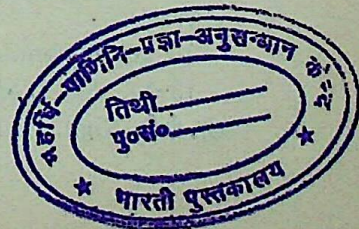 महर्षि-पाणिनि-प्रज्ञा-अनुसन्धान के-2
तिथी
पु०सं०
★ भारती पुस्तकालय ★